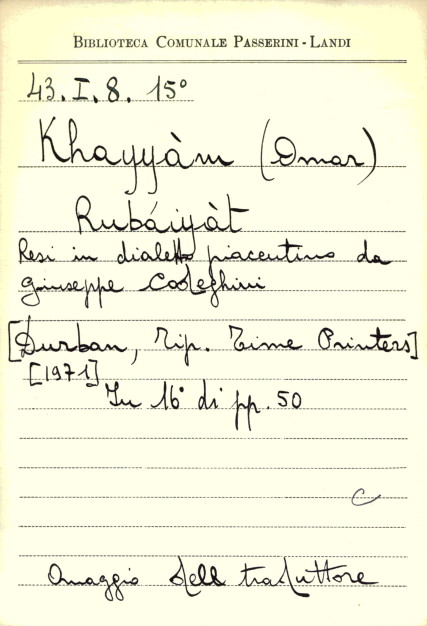 BIBLIOTECA COMUNALE PASSERINI - LANDI
43. I. 8. 15°
Khayyàm (Omar)
Rubáiyàt
Resi in dialetto piacentino da
Giuseppe
[Durban, Tip. Time Printers]
[1971]
In 16° di pp. 50
C
Omaggio dell traduttore